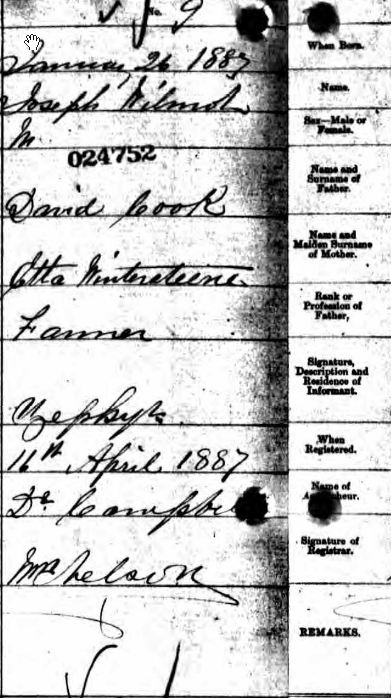 No. 9
When Born.
January 26 1887
Name.
Joseph Wilmot
Sex—Male or
Female.
M.
024752
Name and
Surname of
Father.
David Cook
Name and
Maiden Surname
of Mother.
Etta Wintersteene
Rank or
Profession of
Father,
Farmer
Signature,
Description and
Residence of
Informant.
Zephyr
When
Registered.
16th April 1887
Name of
Dr Campbell
Signature of
Registrar.
Nelson
REMARKS.